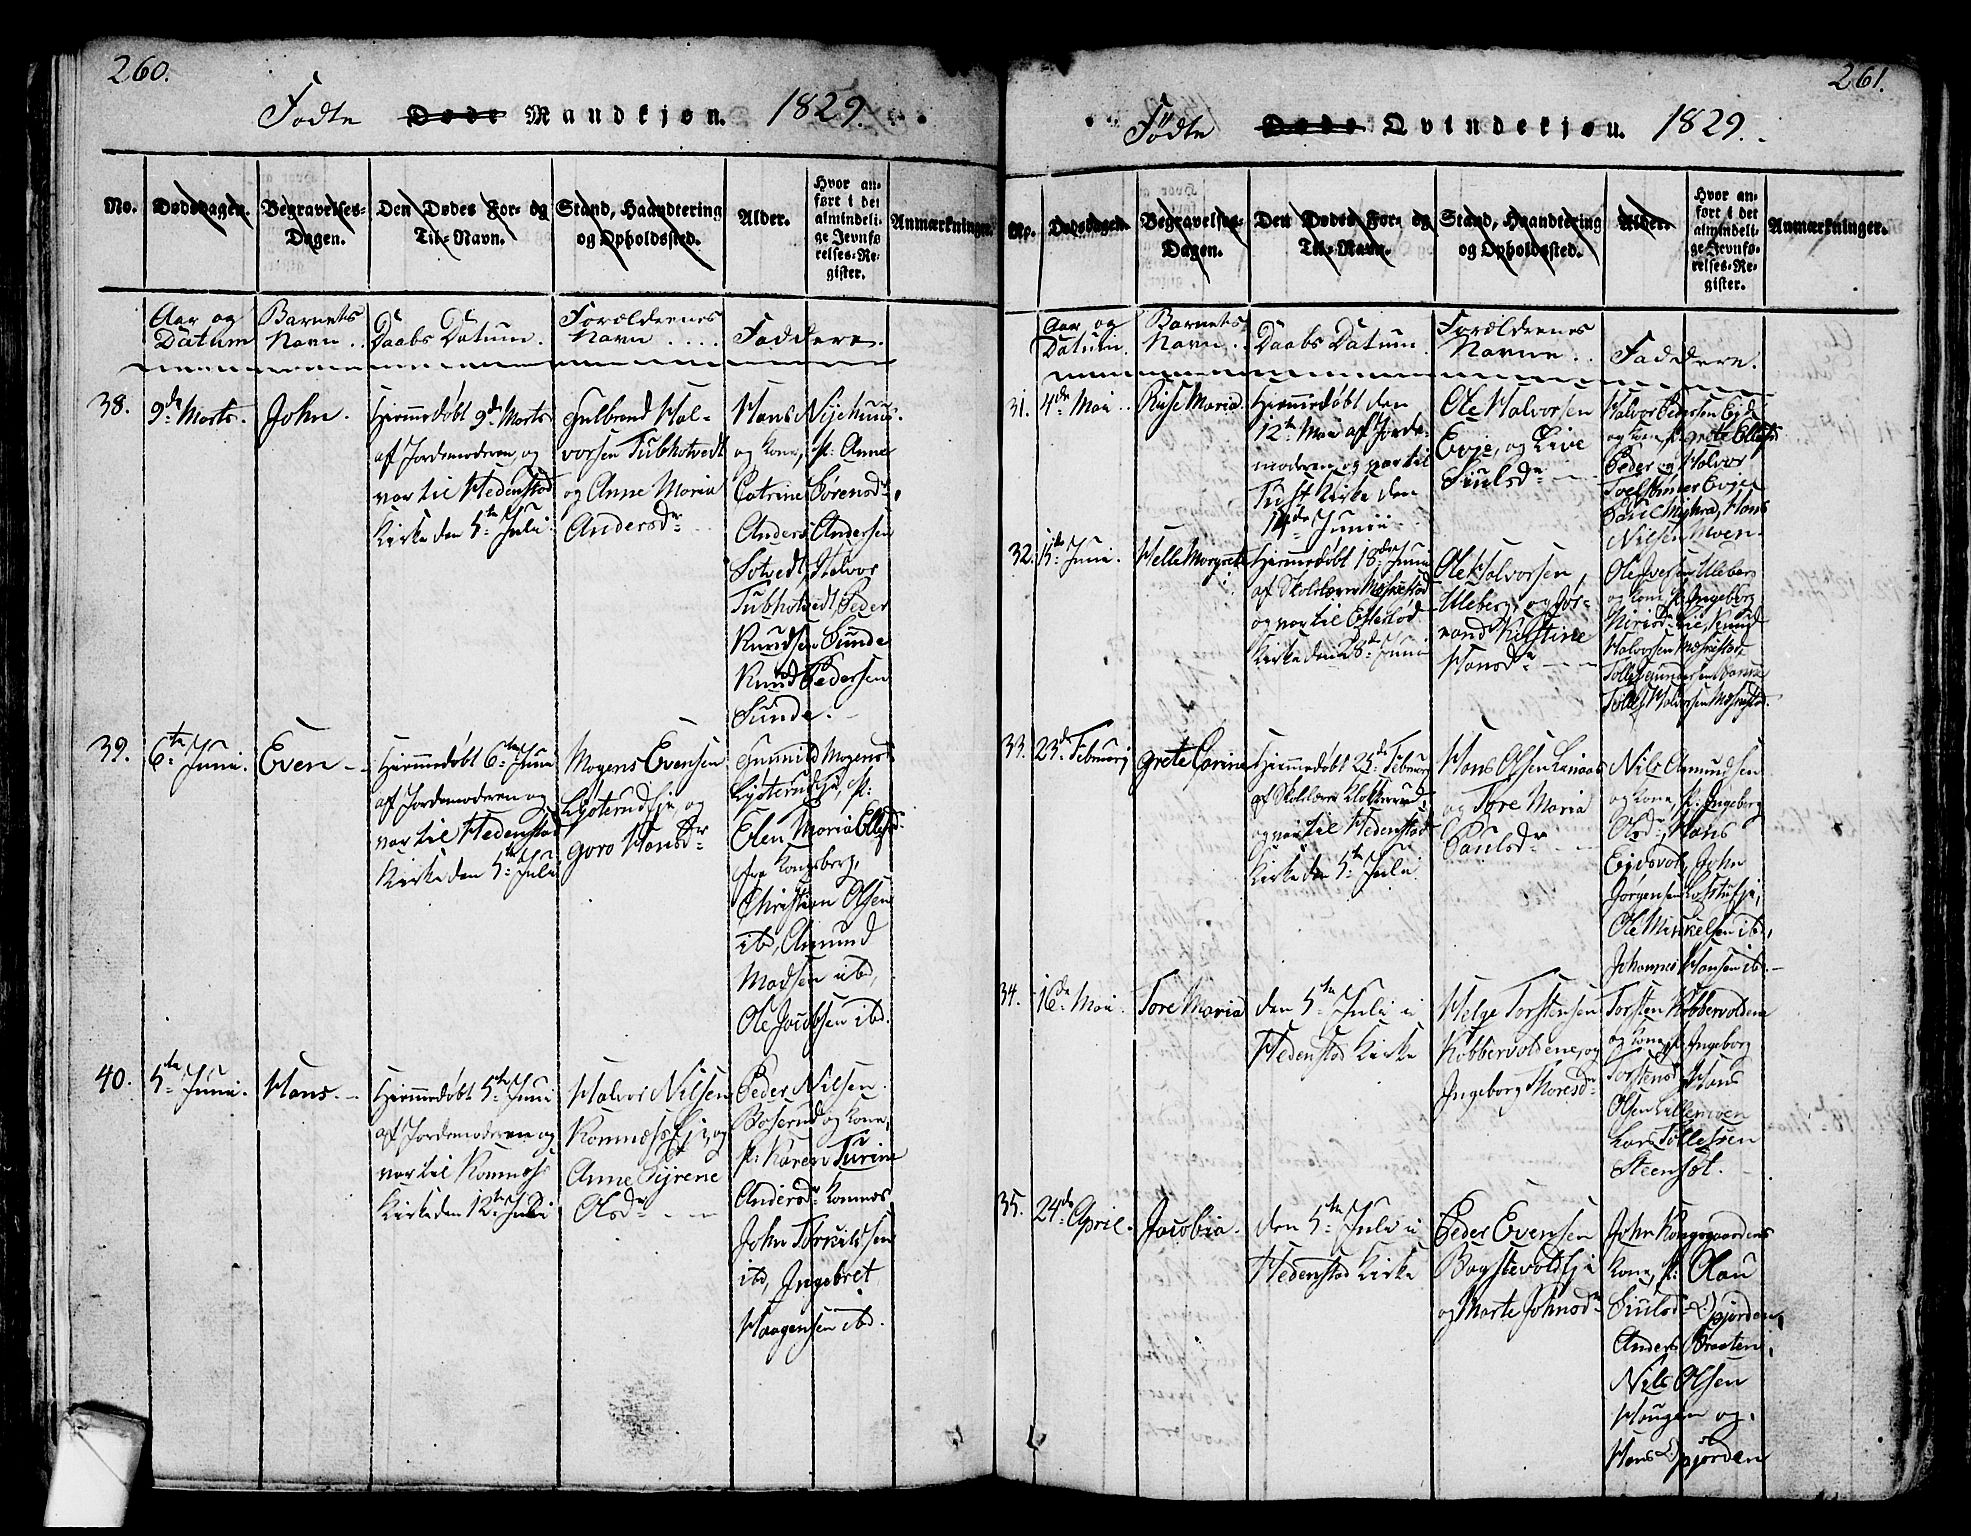 260.
Fødte Døde Mandkjøn. 1829.
No.
Dødsdagen.
Begravelses-
Dagen.
Den Dødes For- og
Til-Navn.
Stand, Haandtering
og Opholdssted.
Alder.
Hvor an-
ført i det
almindeli-
ge Jevnfø
relses-Re-
gister.
Anmærkninger.
Aar og
Datum
Barnets
Navn..
Daabs Datum.
Forældrenes
Navn ....
Faddere.
38.
9de Marts.
John.
Hiemmedøbt 9de Marts
af Jordemoderen, og
var til Hedenstad
Kirke den 5te Juli.
Gulbrand Hal-
vorsen Tubhotvedt
og Anne Maria
Andersdr
Hans Nijehuus.
og Kone, p: Anne
Catrine Sørensdr,
Anders Andersen
Sotvedt, Halvor
Tubhotvedt, Peder
Knudsen Sunde
Knud Pedersen
Sunde.
39.
6te Juni.
Even --
Hiemmedøbt 6te Juni
af Jordemoderen og
var til Hedenstad
Kirke den 5te Juli
Mogens Evensen
Lysterudeje og
Goro Hansdr
Gunnild Mogens
Lysterudeje, p:
Elen Maria Ellefsdr
fra Kongsberg,
Christian Olsen
ibd, Amund
Madsen ibd,
Ole Jacobsen ibd.
40.
5te Juni.
Hans.--
Hiemmedøbt 5te Juni
af Jordemoderen og
var til Komnæs
Kirke den 12te Juli
Halvor Nilsen
Komnæs Eje, og
Anne Kyrene
Olsdr ---
Peder Nilsen
Boserud og Kone,
p: Karen Turine
Andersdr Komnæs
John Torkildsen
ibd, Ingebret
Haagensen ibd.
261.
Fødte Døde Qvindekjøn. 1829.
No.
Dødsdagen.
Begravelses-
Dagen.
Den Dødes For- og
Til-Navn.
Stand, Haandtering
og Opholdssted.
Alder.
Hvor an-
ført i det
almindeli-
ge Jevnfø-
relses-Re-
gister.
Anmærkninger.
Aar og
Datum.
Barnets
Navn..
Daabs Datum.
Forældrenes
Navne..
Faddere.
31.
4de Mai..
Maria.
Hiemmedøbt den
12te Mai af Jorde-
moderen, og var til
Tuft Kirke den
14de Junii
Ole Halvorsen
Evje, og Live
Siulsdr
Halvor Pedersen Eyde
og Kone, p: Grete Ellefsd
Peder og Halvor
Evje
Hans
Nilsen Moen.
32.
15te Juni.
Helle Margrete
Hiemmedøbt 18de Juni
af Skolelærer Mæskestad
og var til Eftelød
Kirke den 28de Juni
Ole Halvorsen
Uleberg, og Jør-
rand Kirstine
Hansdr ---
Ole Iversen Uleberg
og Kone, p: Ingeborg
Knud
Halvorsen Mæskestad
Tollef Gundersen
Tollef Halvorsen Mæskestad.
33.
23de Februarj
Grete Carine
Hiemmedøbt 25de Februar
af Skolelærer Klokkerud,
og var til Hedenstad
Kirke den 5te Juli.
Hans Olsen Linaas
og Tore Maria
Paulsdr
Nils Amundsen
og Kone, p: Ingeberg
Olsdr, Hans
Eidsvold, John
Jørgensen
Ole Mikkelsen ibd,
Johannes Hansen ibd.--
34.
16de Mai.
Tore Maria
den 5te Juli i
Hedenstad Kirke
Helge Torstensen
Kobbervoldene, og
Ingeborg Thoresdr
Torsten Kobbervoldene
og Kone, p: Ingeborg
Torstensd, Hans
Olsen Lillemoen
Lars Tollefsen
Steensæt.
35.
24de April.
Jacobia.
den 5te Juli i
Hedenstad Kirke
Peder Evensen
Bogstevoldeje
og Marte Johnsdr
John Kongsgaardens
Kone, p: Olau
Siulsdr Opjorden,
Anders Braaten,
Nils Olsen
Haugen og.
Hans Opjorden